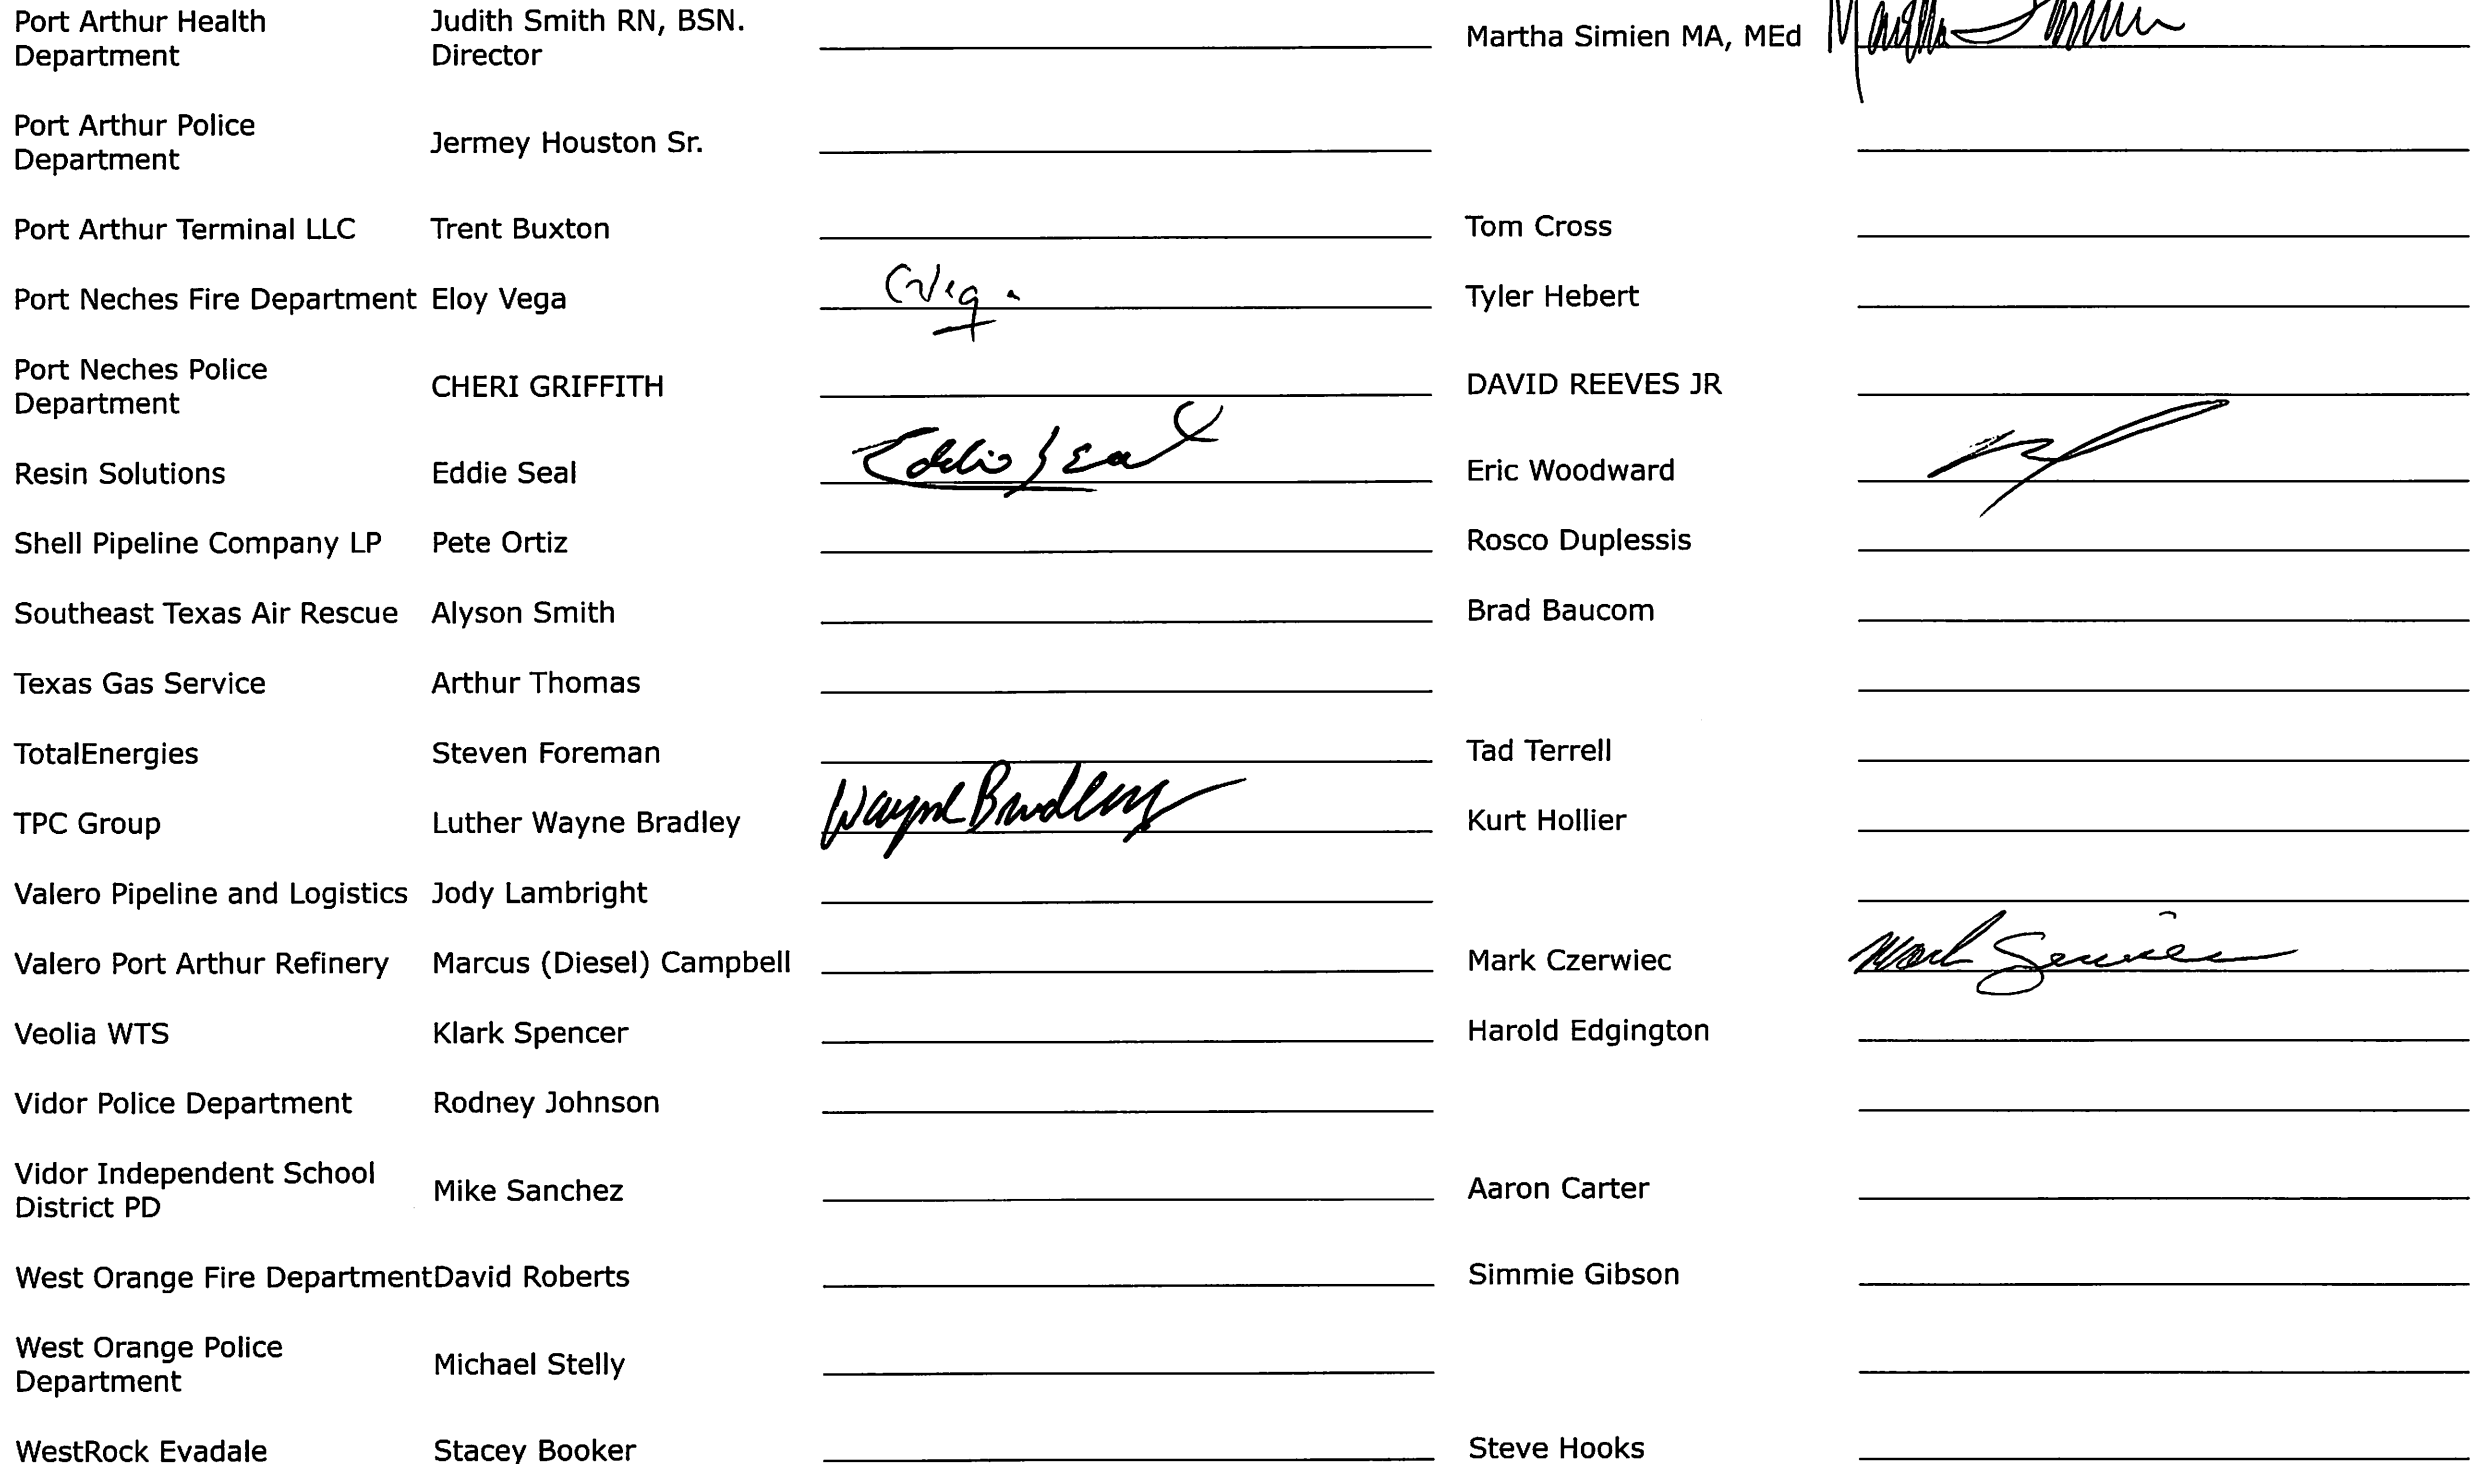 Port Arthur Health Department Judith Smith RN, BSN. Director Martha Simien MA, MEd Martha Simien
Port Arthur Police Department Jermey Houston Sr.
Port Arthur Terminal LLC Trent Buxton Tom Cross
Port Neches Fire Department Eloy Vega Tyler Hebert
Port Neches Police Department CHERI GRIFFITH DAVID REEVES JR
Resin Solutions Eddie Seal Eddie Seal Eric Woodward
Shell Pipeline Company LP Pete Ortiz Rosco Duplessis
Southeast Texas Air Rescue Alyson Smith Brad Baucom
Texas Gas Service Arthur Thomas
TotalEnergies Steven Foreman Tad Terrell
TPC Group Luther Wayne Bradley Wayne Bradley Kurt Hollier
Valero Pipeline and Logistics Jody Lambright
Valero Port Arthur Refinery Marcus (Diesel) Campbell Mark Czerwiec Mark
Veolia WTS Klark Spencer Harold Edgington
Vidor Police Department Rodney Johnson
Vidor Independent School District PD Mike Sanchez Aaron Carter
West Orange Fire Department David Roberts Simmie Gibson
West Orange Police Department Michael Stelly
WestRock Evadale Stacey Booker Steve Hooks